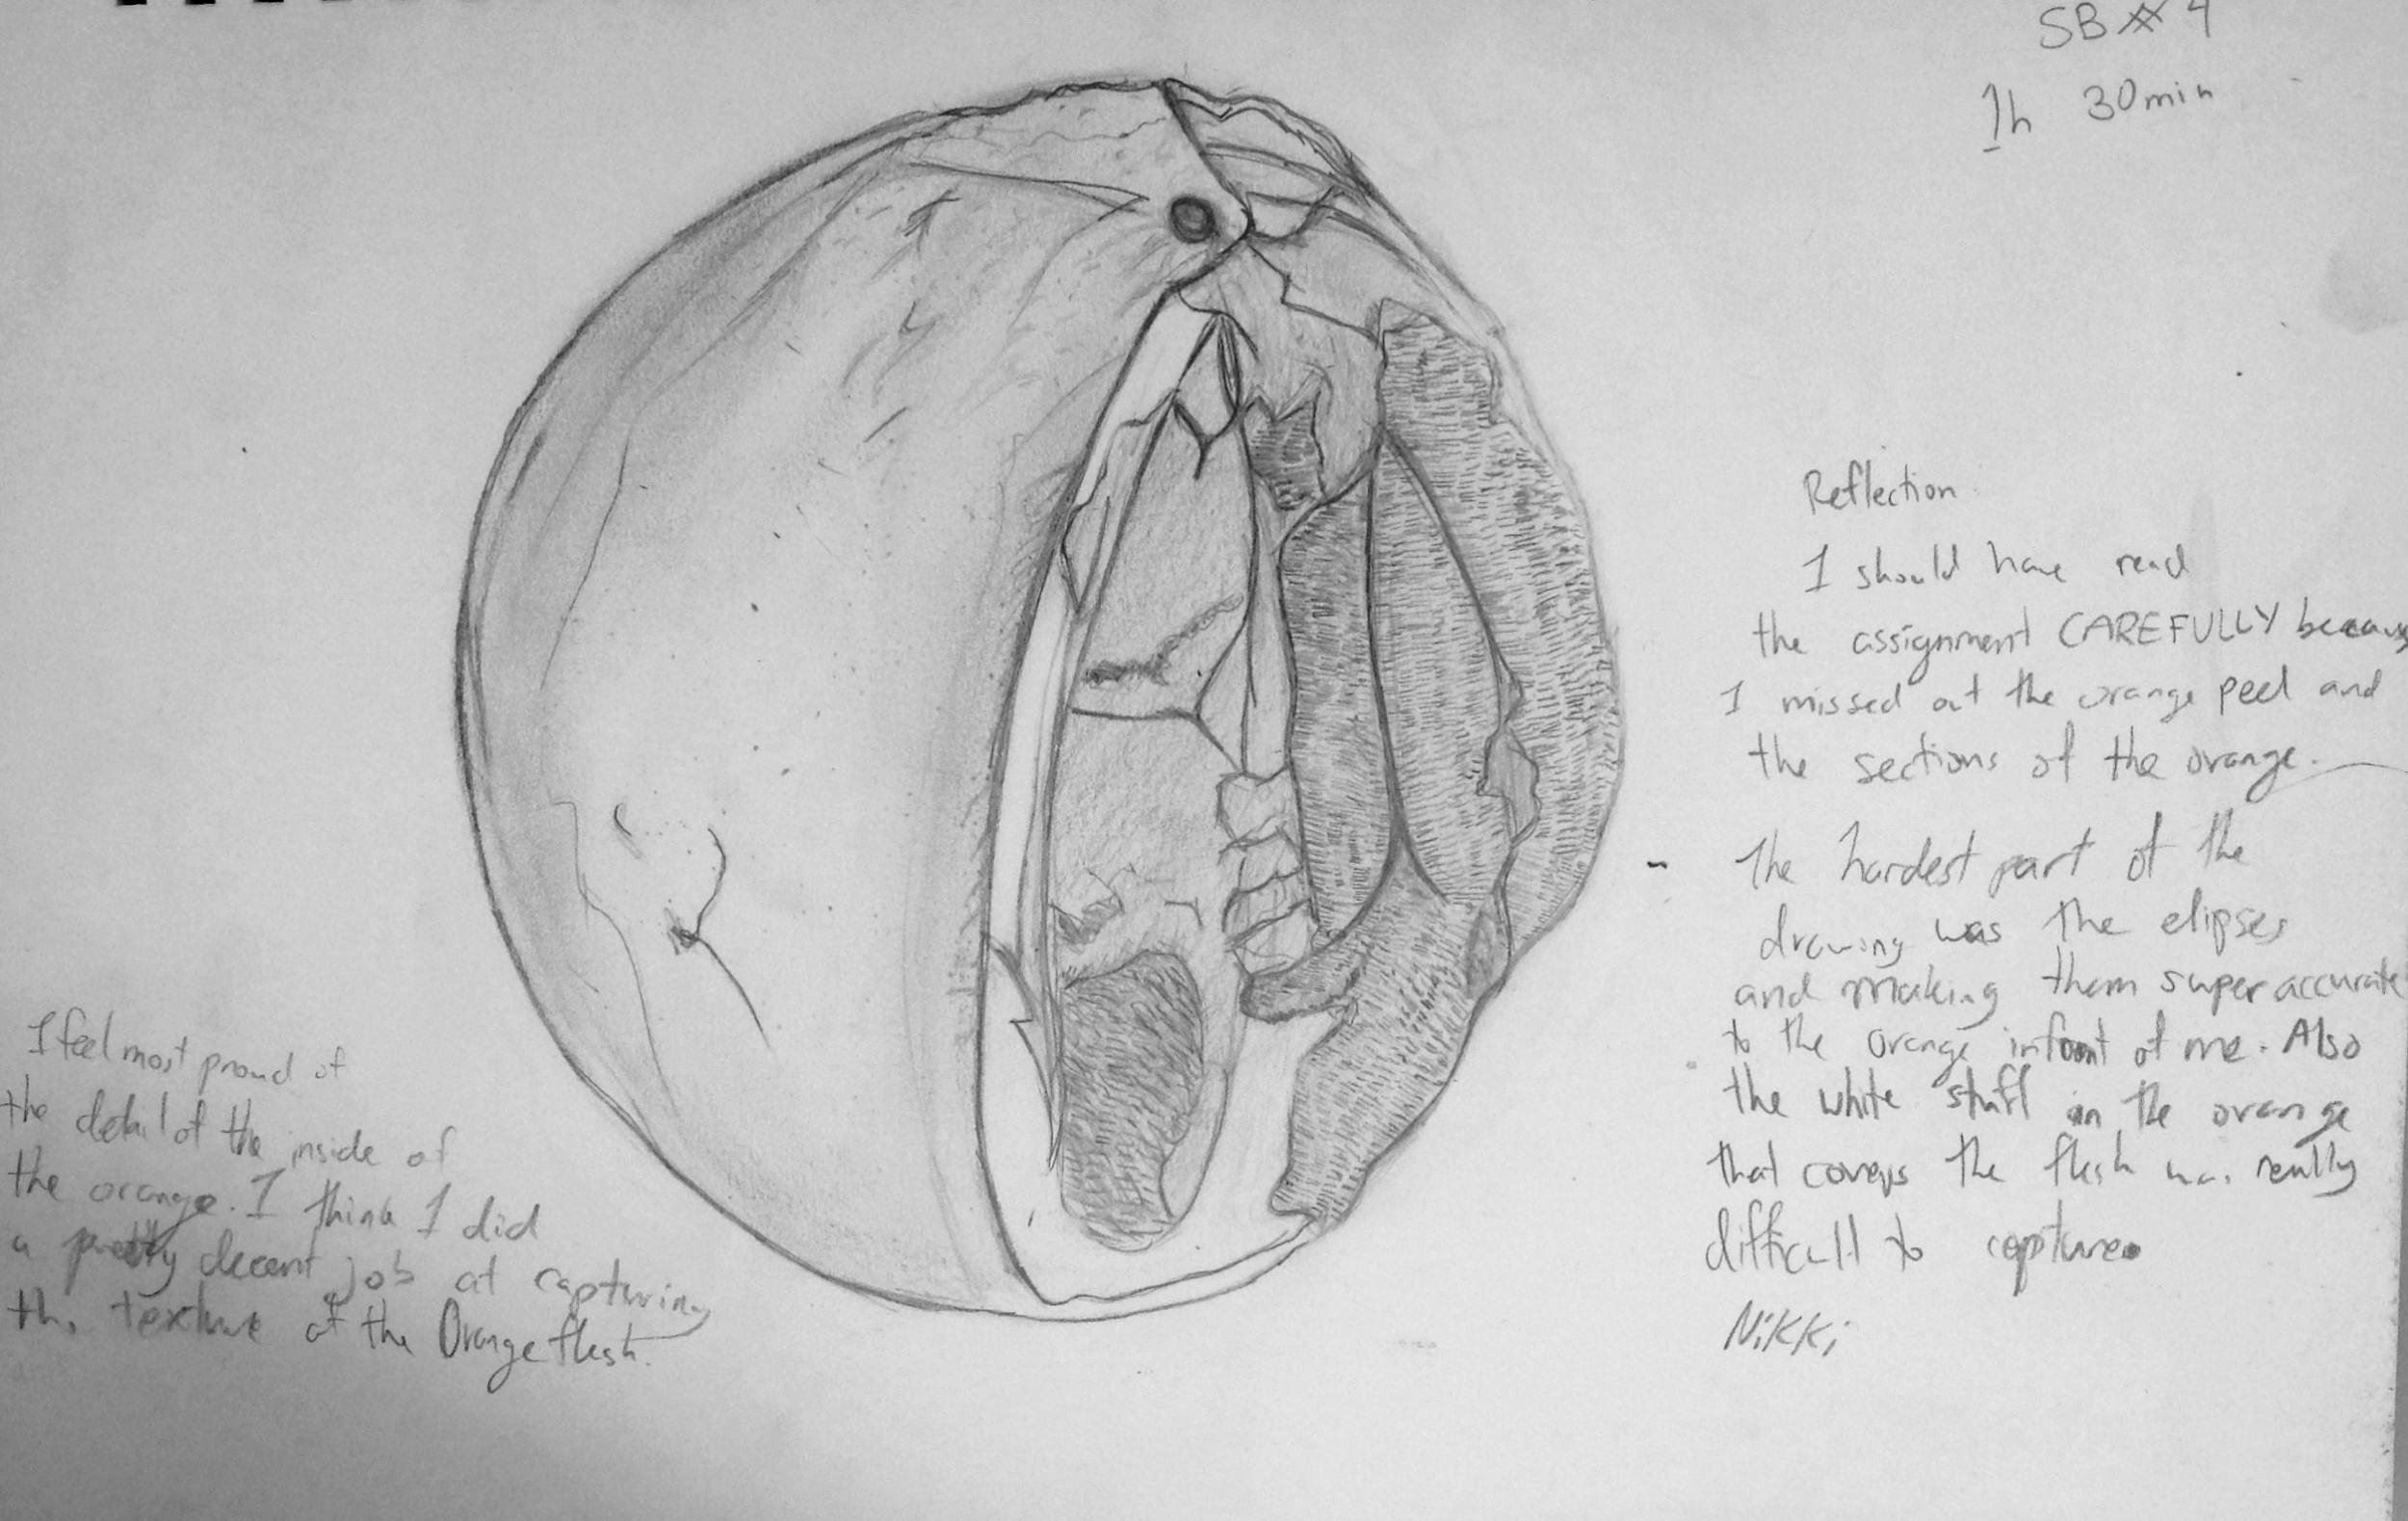 SB #4
1h 30min
Reflection
I should have read
the assignment CAREFULLY because
I missed out the orange peel and
the sections of the orange.
- The hardest part of the
drawing was the elipses
and making them super accurate
to the orange infront of me. Also
the white stuff in the orange
that covers the flesh was really
difficult to capture.
Nikki
I feel most proud of
the detail of the inside of
the orange. I think I did
a pretty decent job at capturing
the texture of the Orange flesh.